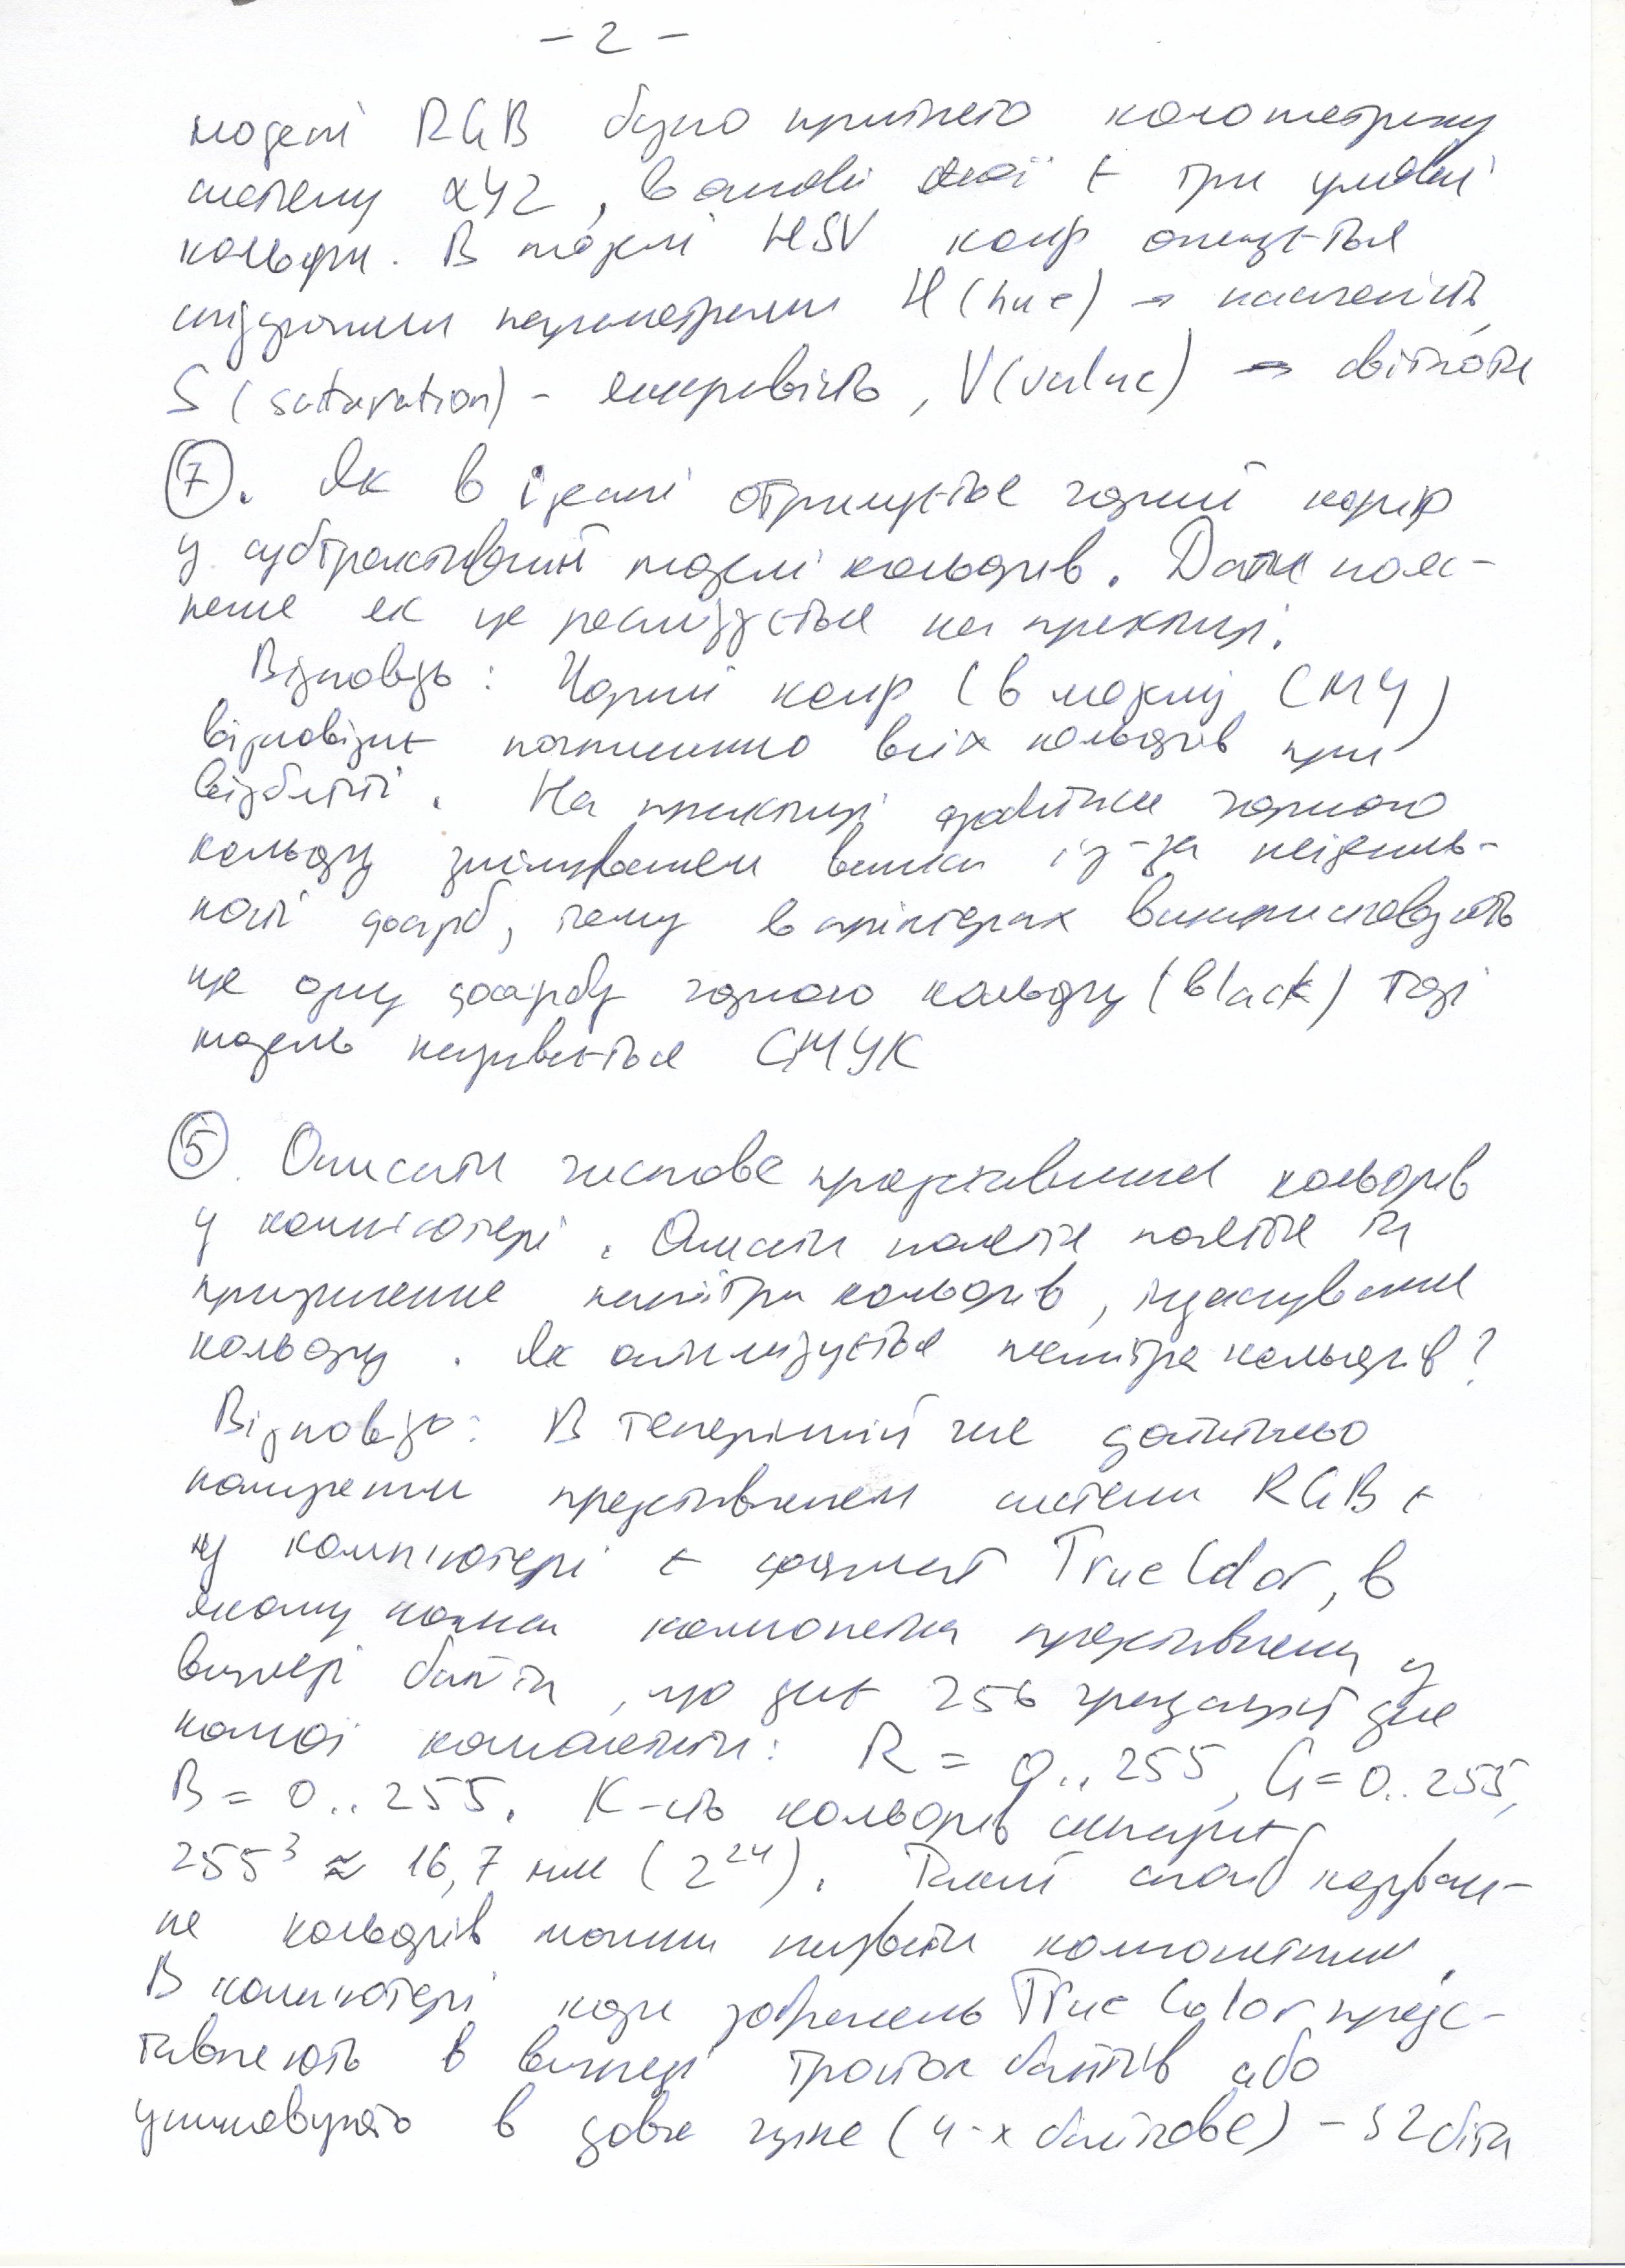 - 2 -
моделі RGB було прийнято колометричну
систему XYZ, в основі якої є три умовні
кольори. В моделі HSV колір описується
слідуючими параметрами H (hue) - насиченість,
S (saturation) - яскравість, V (value) - світлота
7. Як в ідеалі отримується чорний колір
у субтрактивній моделі кольорів. Дати пояс-
нення як це реалізується на практиці.
Відповідь: Чорний колір (в моделі CMY)
відповідає поглиненню всіх кольорів при
відбитті. На практиці добитися чорного
кольору змішуванням важко із-за неідеаль-
ності фарб, тому в принтерах використовують
ще одну фарбу чорного кольору (black) тоді
модель називається CMYK
5. Описати числове представлення кольорів
у комп'ютері. Описати поняття та
призначення палітри кольорів, індексування
кольору. Як оптимізується палітра кольорів?
Відповідь: В теперішній час достатньо
поширеним представленням системи RGB є
у комп'ютері є формат True Color, в
якому кожна компонента представлена у
вигляді байта, що дає 256 градацій для
кожної компоненти: R = 0..255, G = 0..255,
B = 0..255. К-сть кольорів складає
255³ ≈ 16,7 млн (2²⁴). Такий спосіб кодуван-
ня кольорів можна назвати компонентним.
В комп'ютері коди зображень True Color предс-
тавляють в вигляді трійок байтів або
упаковують в довге ціле (4-х байтове) - 32 біта